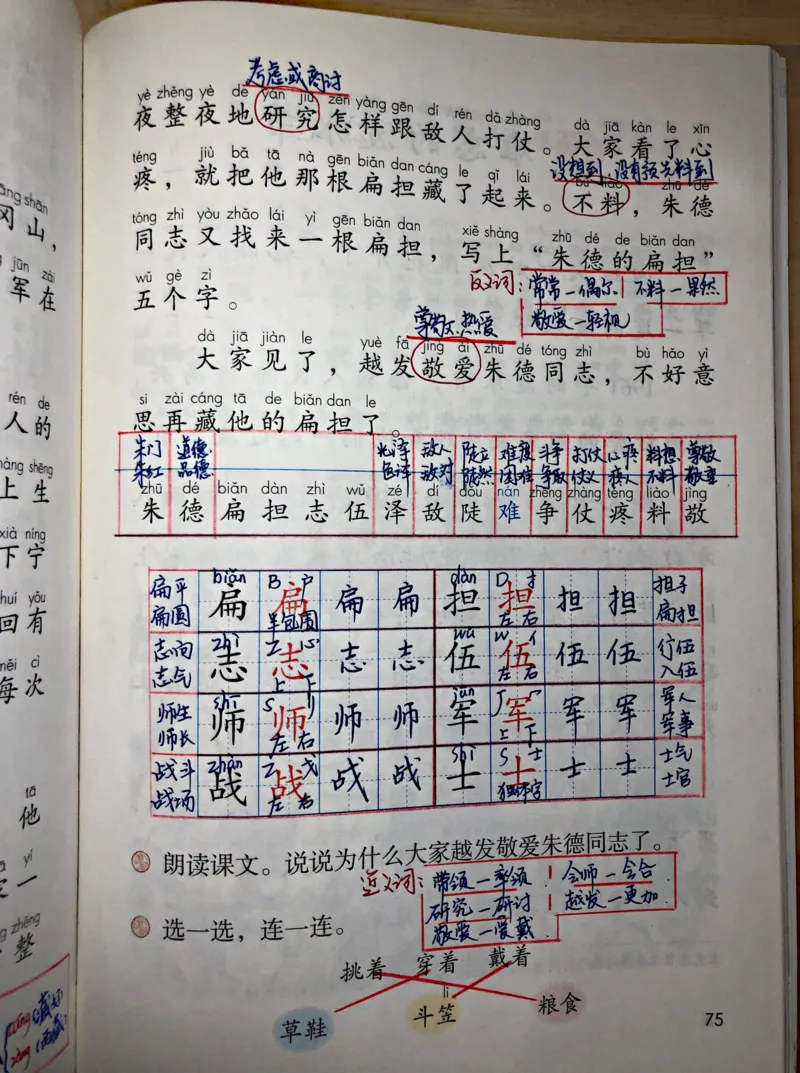 考虑或商讨
yè zhěng yè de yán jiū zěn yàng gēn dí rén dǎ zhàng
夜整夜地研究怎样跟敌人打仗。大家看了心
dà jiā kàn le xīn
téng jiù bǎ tā nà gēn biǎn dan cáng le qǐ lái
疼，就把他那根扁担藏了起来。不料，朱德
没想到；没有预先料到
bú liào zhū dé
tóng zhì yòu zhǎo lái yì gēn biǎn dan xiě shàng zhū dé de biǎn dan
同志又找来一根扁担，写上“朱德的扁担”
wǔ gè zì
五个字。
反义词：常常—偶尔 不料—果然
敬爱—轻视
尊敬热爱
dà jiā jiàn le yuè fā jìng ài zhū dé tóng zhì bù hǎo yì
大家见了，越发敬爱朱德同志，不好意
si zài cáng tā de biǎn dan le
思再藏他的扁担了。
朱门 道德 光泽 敌人 陡立 难过 斗争 打仗 心疼 料想 尊敬
朱红 品德 色泽 敌对 陡然 困难 争取 仗义 疼人 不料 敬重
zhū dé biǎn dàn zhì wǔ zé dí dǒu nán zhēng zhàng téng liào jìng
朱 德 扁 担 志 伍 泽 敌 陡 难 争 仗 疼 料 敬
biǎn B 户 dàn D 扌
扁平 扁 扁 扁 扁 担 担 担 担 担子
扁圆 半包围 左右 扁担
zhì Z wǔ W 亻
志向 志 志 志 志 伍 伍 伍 伍 行伍
志气 上下 左右 入伍
shī S jūn J 冖
师生 师 师 师 师 军 军 军 军 军人
师长 左右 上下 军事
zhàn Z 戈 shì S 士
战斗 战 战 战 战 士 士 士 士 士气
战场 左右 独体字 士官
朗读课文。说说为什么大家越发敬爱朱德同志了。
近义词：带领—率领 会师—会合
研究—研讨 越发—更加
敬爱—爱戴
选一选，连一连。
挑着 穿着 戴着
lì
草鞋 斗笠 粮食
75
āng shān
冈山，
jūn zài
军在
rén de
人的
shēng
上生
xià níng
下宁
huí yǒu
回有
měi cì
每次
tā
他
yí
一
zhěng
整
cáng（藏好）
zàng（西藏）